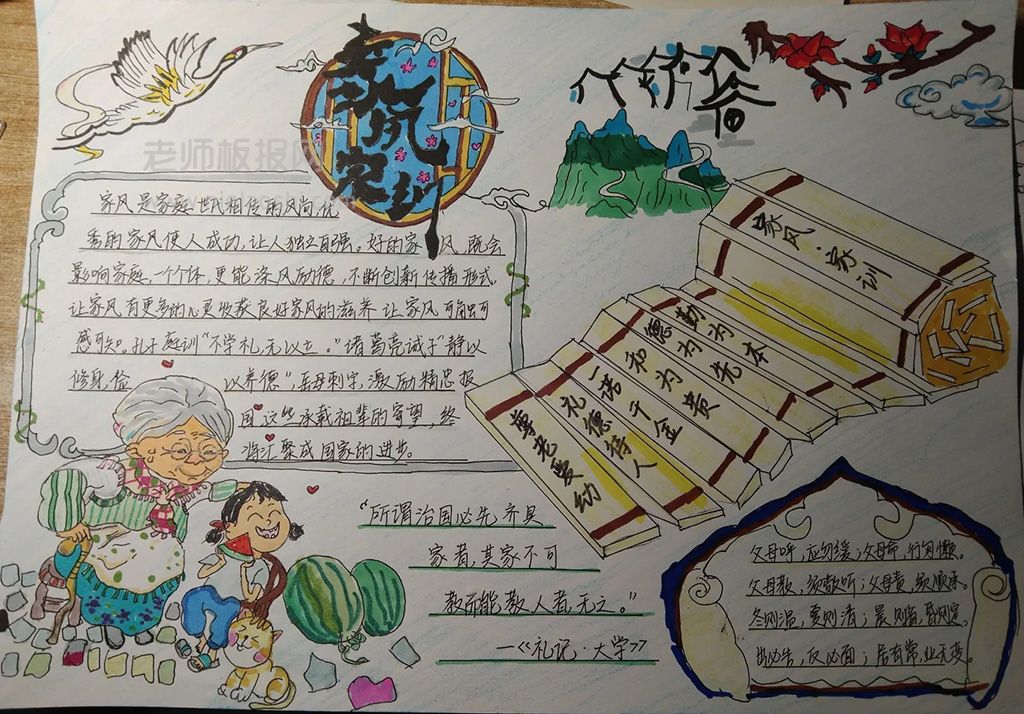 家风家训
老师板报网
家风是家庭世代相传的风尚,优
秀的家风使人成功,让人独立自强。好的家风,既会
影响家庭一个个体,更能涤风励德,不断创新传播形式,
让家风有更多的心更收获良好家风的滋养 让家风可触可
感可知。孔子庭训“不学礼,无以立。”诸葛亮诫子“静以
修身,俭以养德”,岳母刺字,激励精忠报
国,这些承载祖辈的寄望,终
将汇聚成国家的进步。
家风·家训
勤为本
德为先
和为贵
一诺千金
礼德待人
尊老爱幼
“所谓治国必先齐其
家者,其家不可
教而能教人者,无之。”
—《礼记·大学》
父母呼,应勿缓;父母命,行勿懒。
父母教,须敬听;父母责,须顺承。
冬则温,夏则凊;晨则省,昏则定。
出必告,反必面;居有常,业无变。